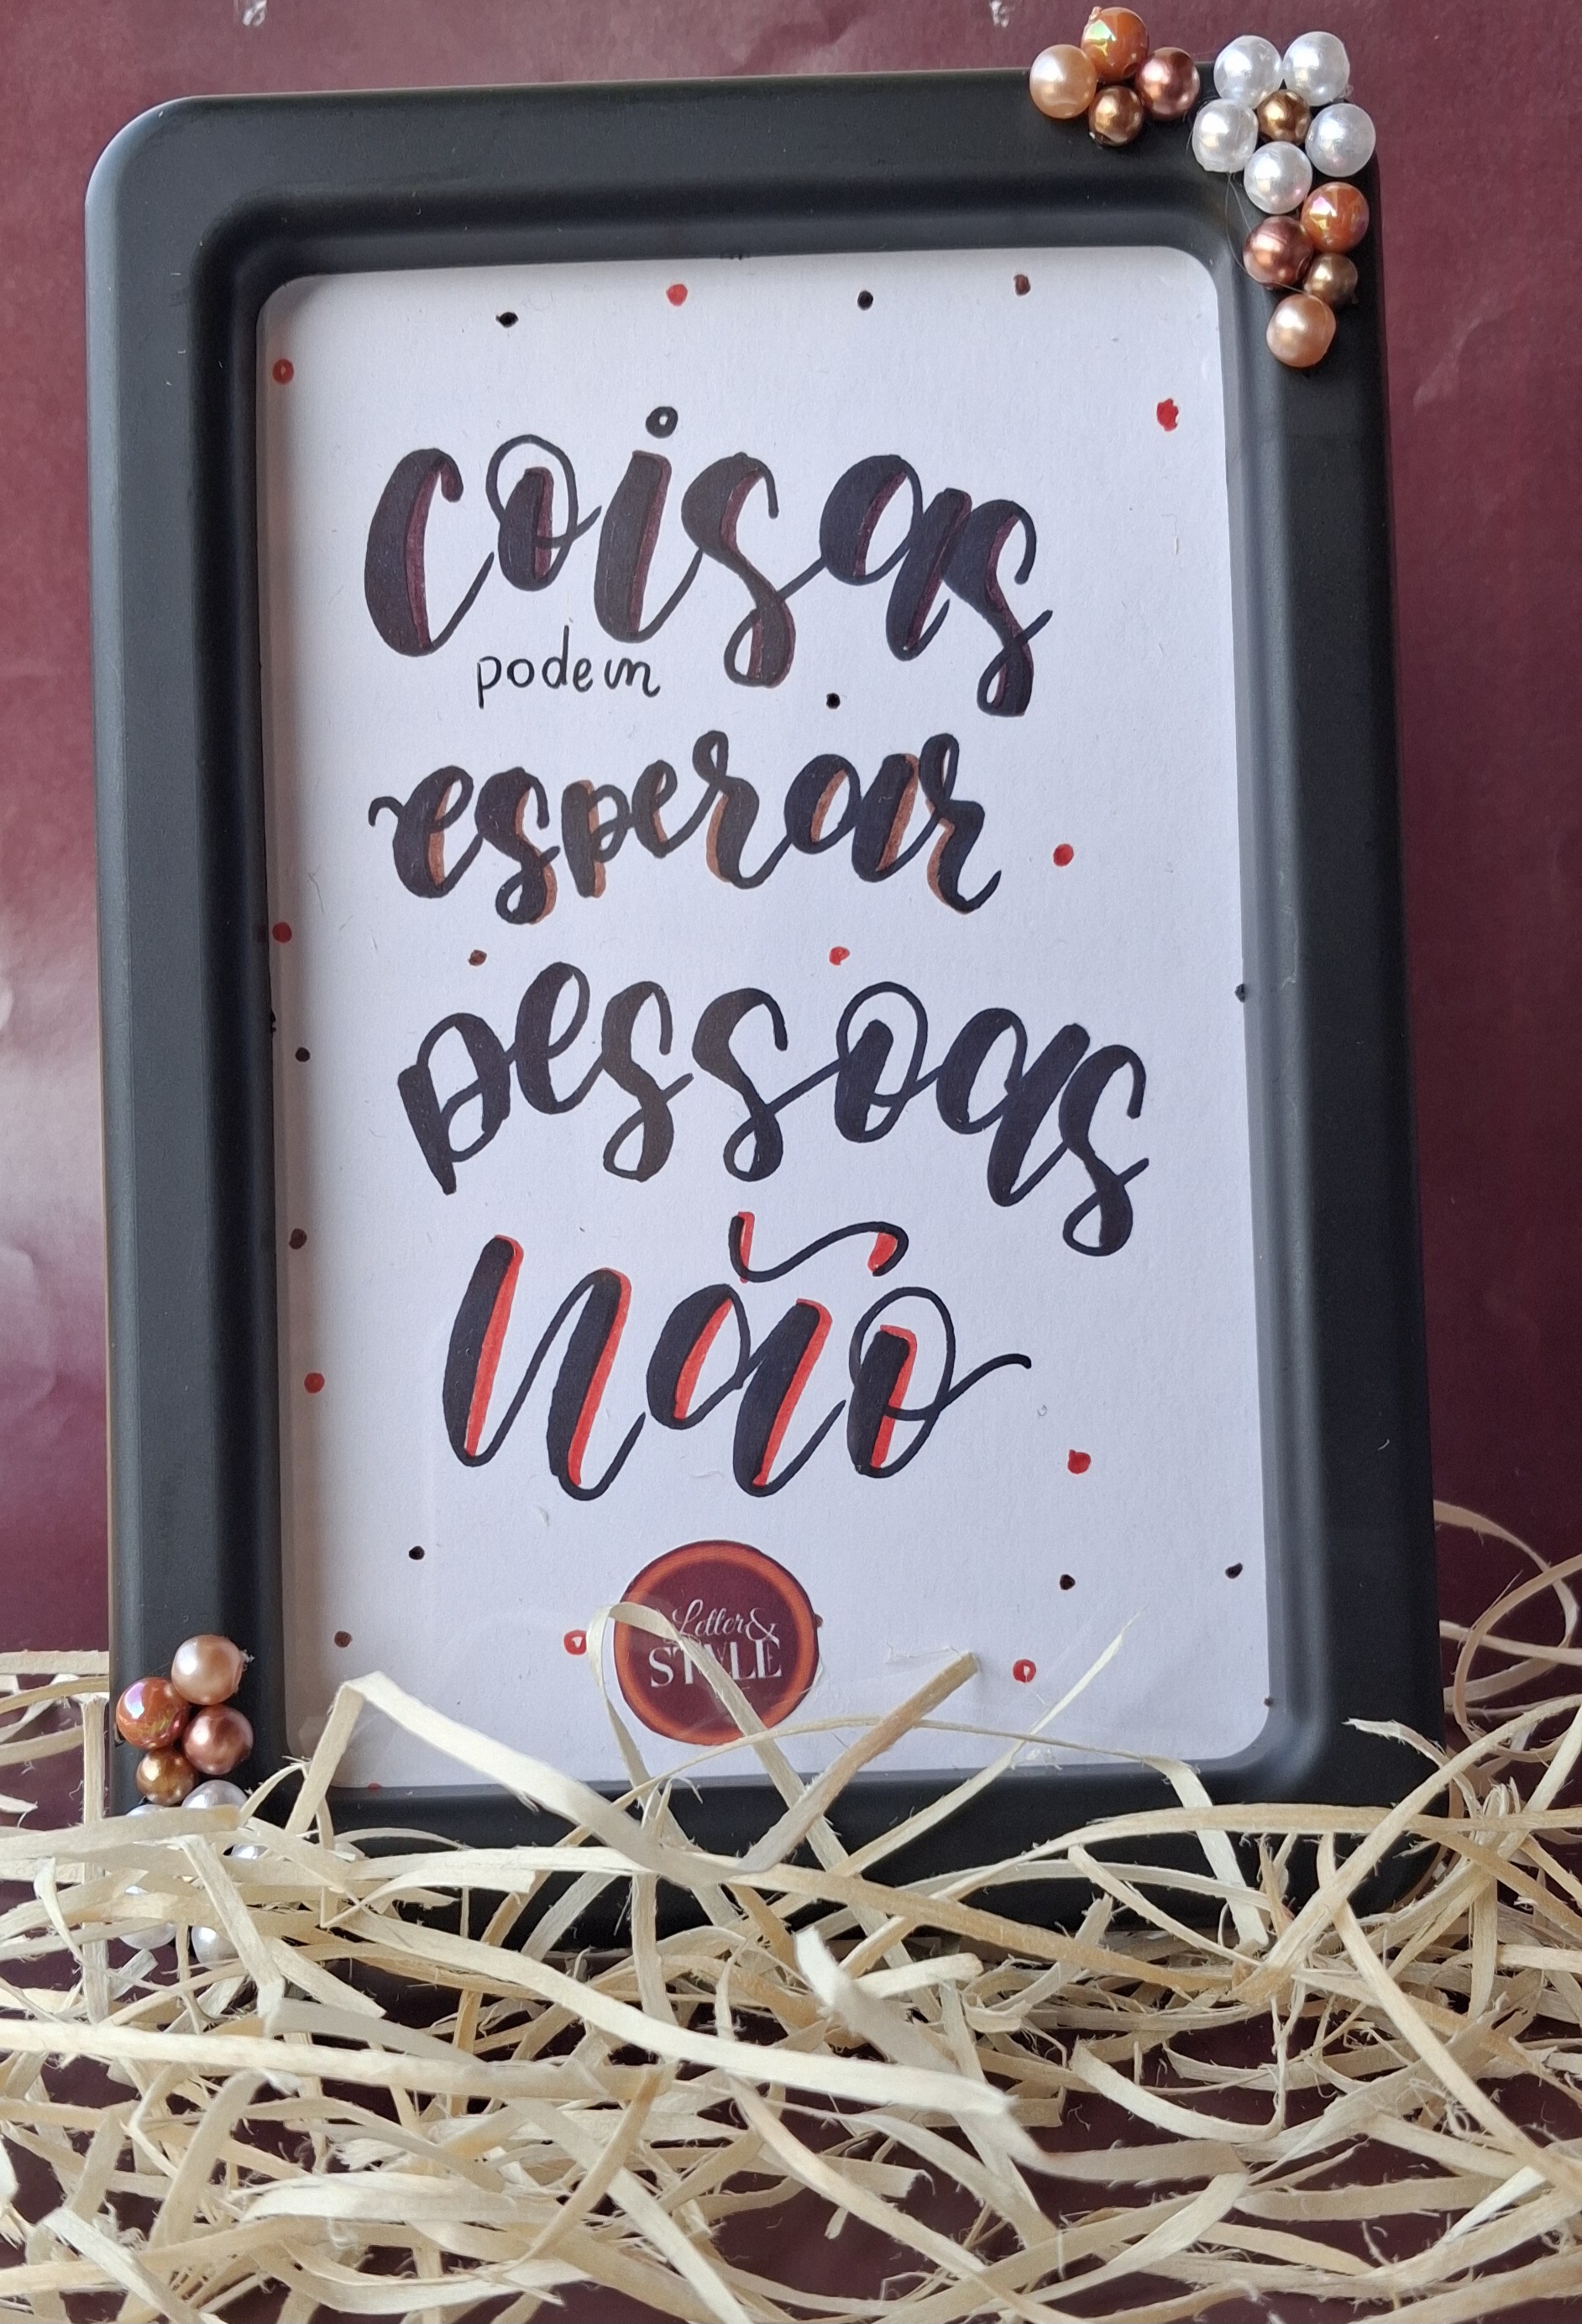 coisas
podem
esperar
pessoas
não
Letter&
STYLE